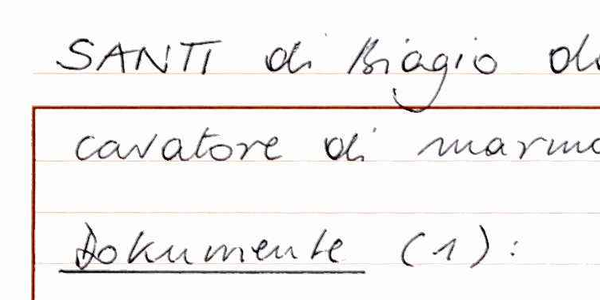 SANTI di Biagio d
cavatore di marmo
Dokumente (1):